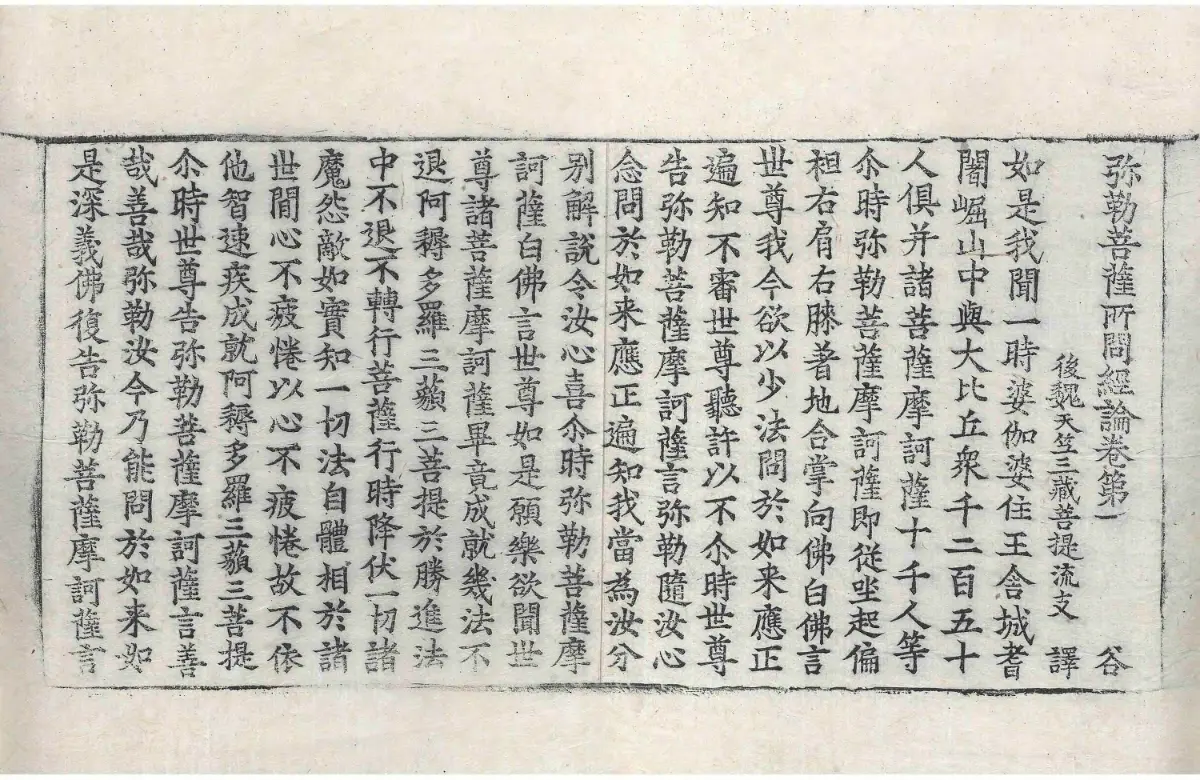 弥勒菩薩所問經論卷第一　谷
後魏天竺三藏菩提流支　譯
如是我聞一時婆伽婆住王舍城耆
闍崛山中與大比丘衆千二百五十
人俱并諸菩薩摩訶薩十千人等
尒時弥勒菩薩摩訶薩即從坐起偏
袒右肩右膝著地合掌向佛白佛言
世尊我今欲以少法問於如来應正
遍知不審世尊聽許以不尒時世尊
告弥勒菩薩摩訶薩言弥勒隨汝心
念問於如来應正遍知我當為汝分
別解說令汝心喜尒時弥勒菩薩摩
訶薩白佛言世尊如是願樂欲聞世
尊諸菩薩摩訶薩畢竟成就幾法不
退阿耨多羅三藐三菩提於勝進法
中不退不轉行菩薩行時降伏一切諸
魔怨敵如實知一切法自體相於諸
世間心不疲惓以心不疲惓故不依
他智速疾成就阿耨多羅三藐三菩提
尒時世尊告弥勒菩薩摩訶薩言善
哉善哉弥勒汝今乃能問於如来如
是深義佛復告弥勒菩薩摩訶薩言